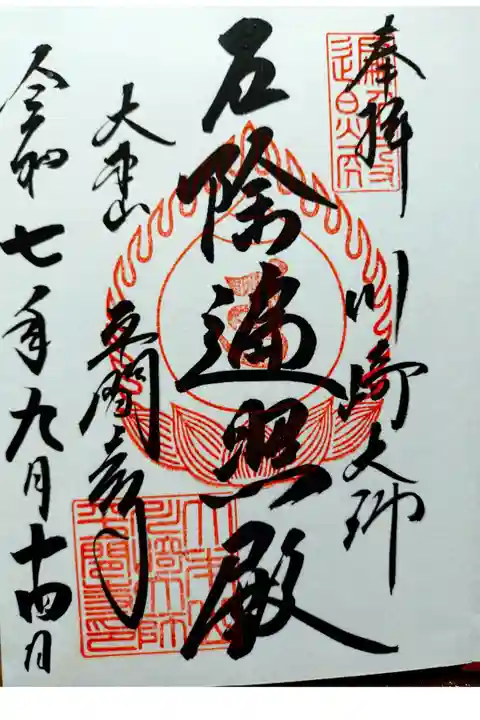 奉拝
川崎大師
厄除遍照殿
大本山
平間寺
令和七年九月十四日